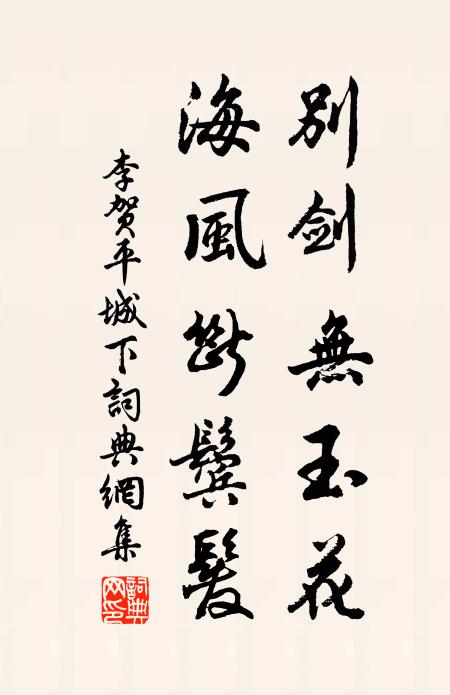 别剑無玉花
海風斷鬢髮
李贺平城下詞典網集
詞典网印